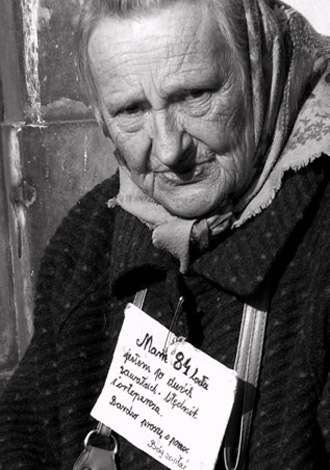 Mam 84 lata
jestem po dwóch
zawałach. Błędnik
i osteporoza.
Bardzo proszę o pomoc
Bóg zapłać